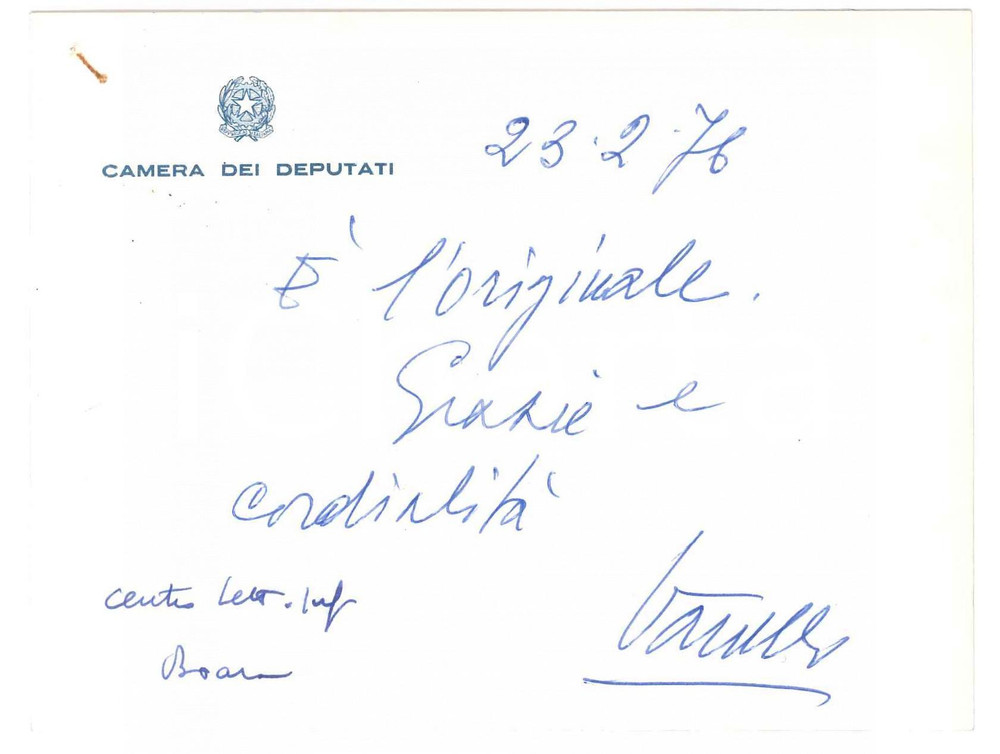 CAMERA DEI DEPUTATI
23.2.76
È l'originale.
Grazie e
cordialità
centro lett. inf
Boar